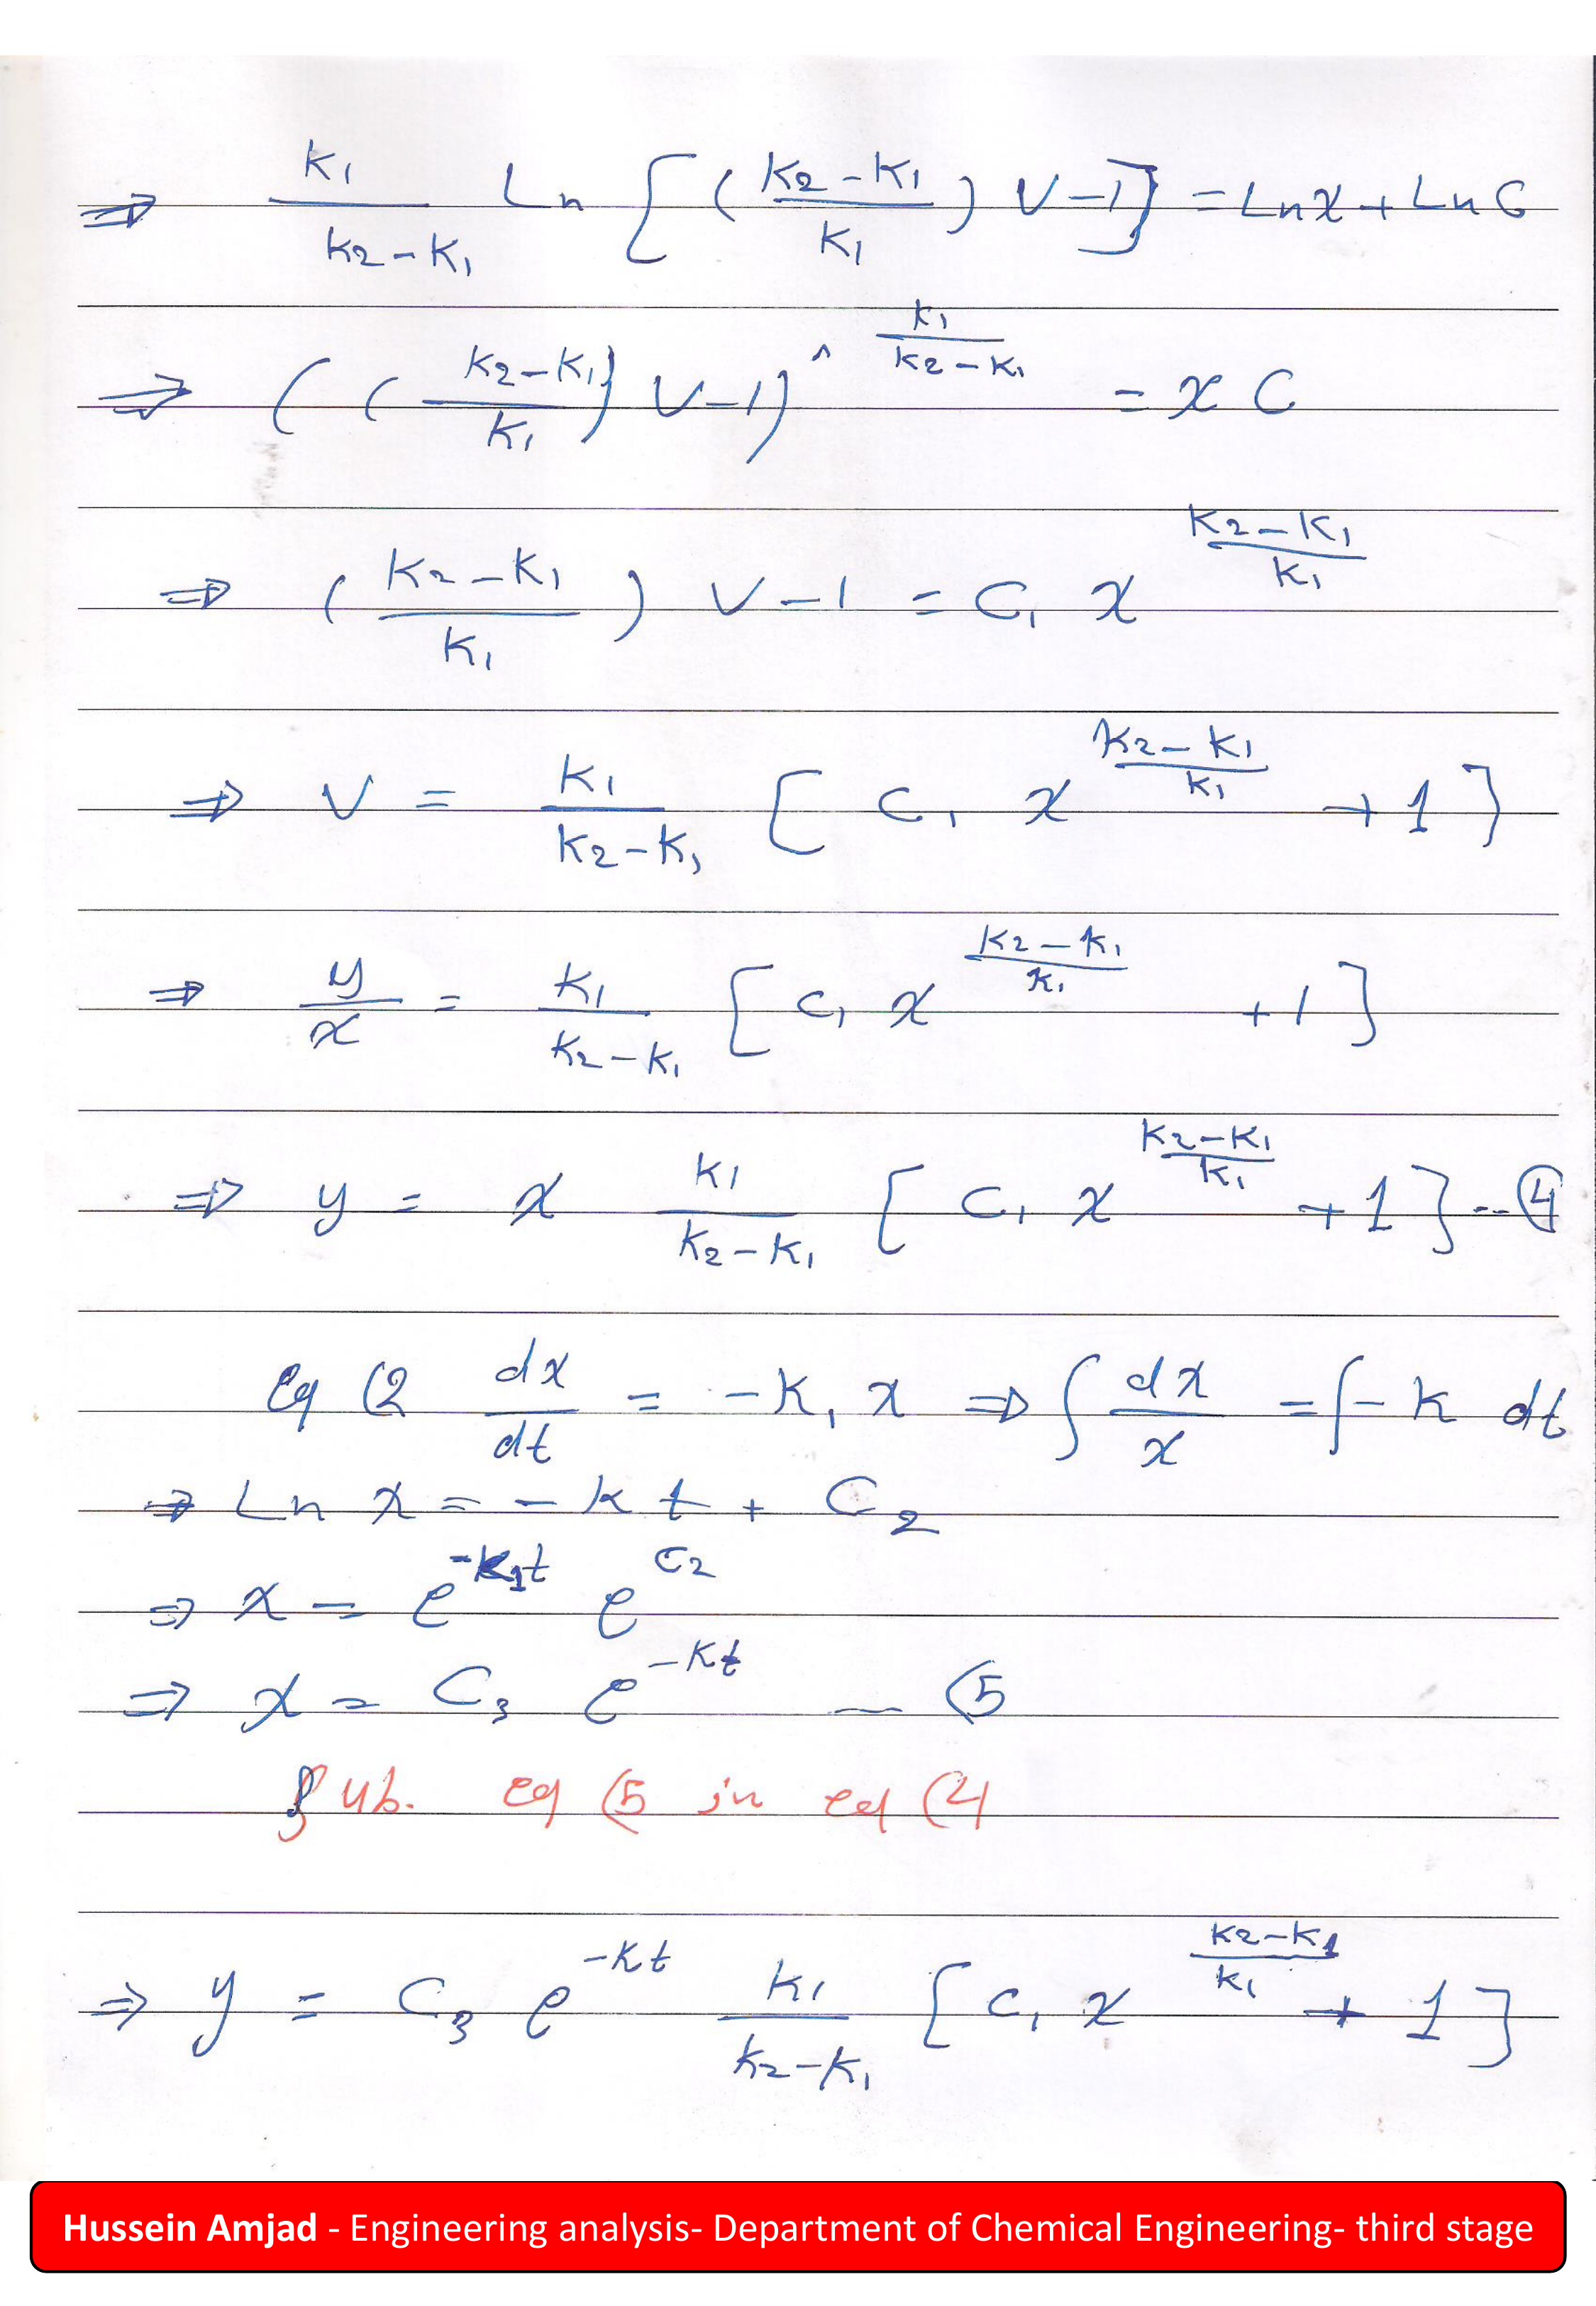 ⇒ k₁/(k₂-k₁) Ln [((k₂-k₁)/k₁) V-1] = Ln x + Ln C
⇒ (((k₂-k₁)/k₁) V-1)^ k₁/(k₂-k₁) = x C
⇒ ((k₂-k₁)/k₁) V-1 = C₁ x^((k₂-k₁)/k₁)
⇒ V = k₁/(k₂-k₁) [C₁ x^((k₂-k₁)/k₁) + 1]
⇒ y/x = k₁/(k₂-k₁) [C₁ x^((k₂-k₁)/k₁) + 1]
⇒ y = x k₁/(k₂-k₁) [C₁ x^((k₂-k₁)/k₁) + 1] -- ④
eq (2 dx/dt = -k₁ x ⇒ ∫ dx/x = ∫ -k dt
⇒ Ln x = -k t + C₂
⇒ x = e^(-k₁t) e^(C₂)
⇒ x = C₃ e^(-kt) — (5
Sub. eq (5 in eq (4
⇒ y = C₃ e^(-kt) k₁/(k₂-k₁) [C₁ x^((k₂-k₁)/k₁) + 1]
Hussein Amjad - Engineering analysis- Department of Chemical Engineering- third stage